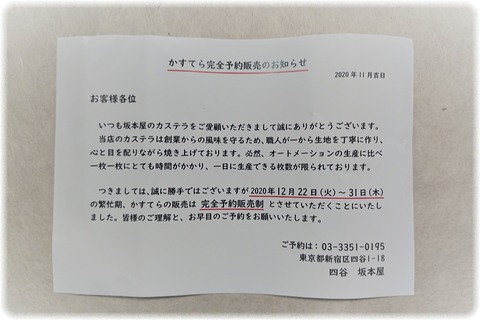 かすてら完全予約販売のお知らせ
2020年11月吉日
お客様各位
いつも坂本屋のカステラをご愛顧いただきまして誠にありがとうございます。
当店のカステラは創業からの風味を守るため、職人が一から生地を丁寧に作り、
心と目を配りながら焼き上げております。必然、オートメーションの生産に比べ
一枚一枚にとても時間がかかり、一日に生産できる枚数が限られております。
つきましては、誠に勝手ではございますが2020年12月22日(火)～31日(木)
の繁忙期、かすてらの販売は 完全予約販売制 とさせていただくことにいたし
ました。皆様のご理解と、お早目のご予約をお願いいたします。
ご予約は：03-3351-0195
東京都新宿区四谷1-18
四谷 坂本屋